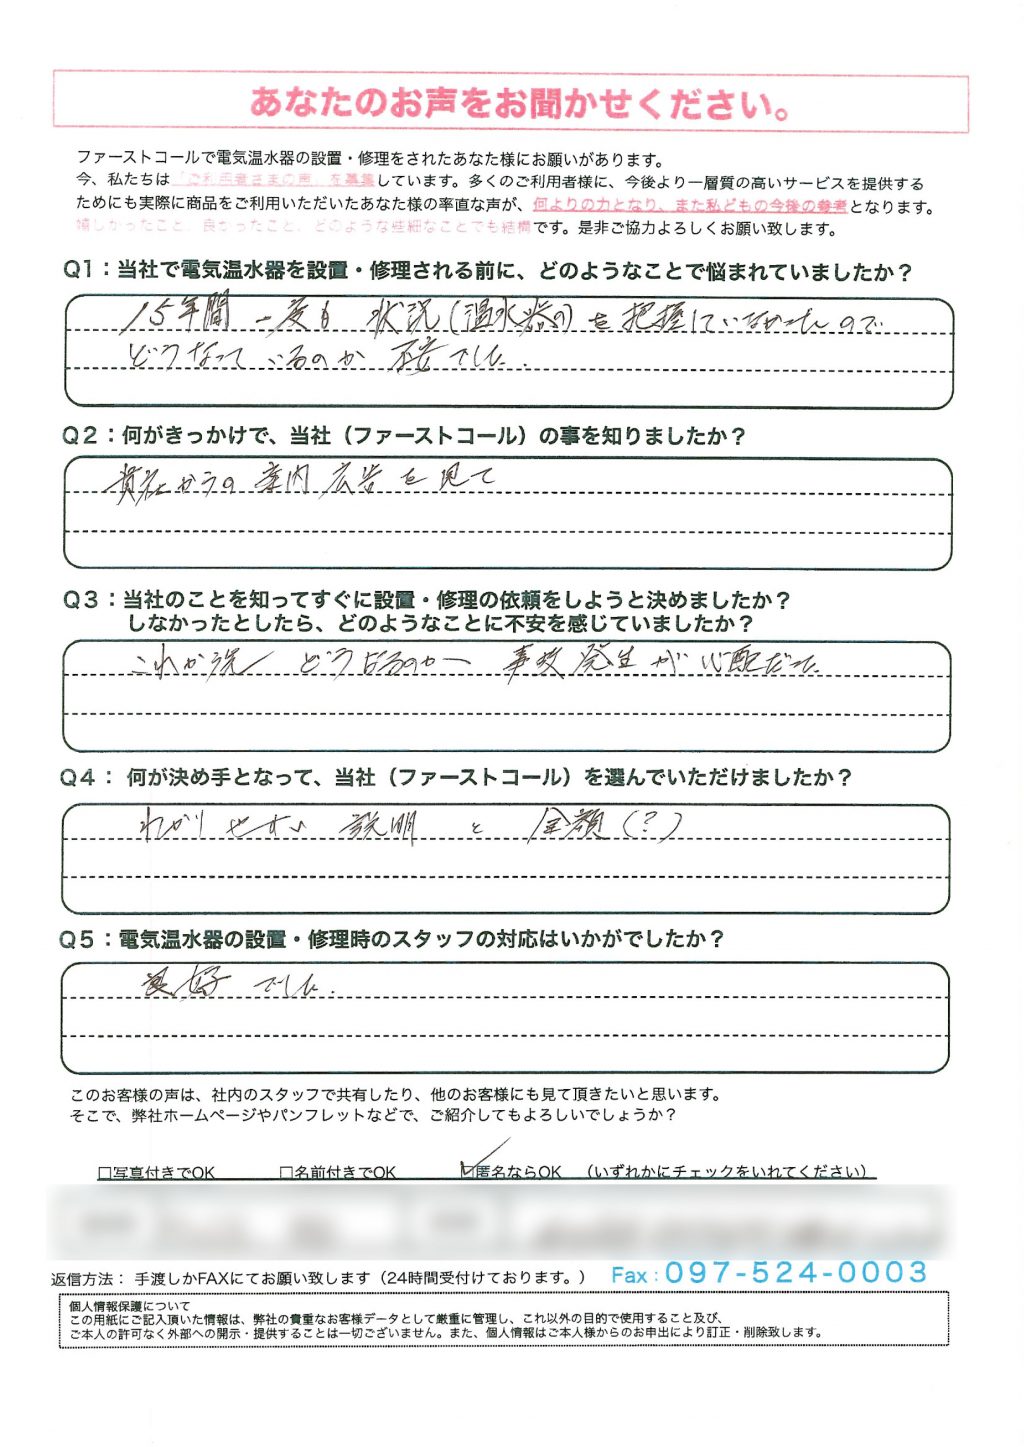 あなたのお声をお聞かせください。
ファーストコールで電気温水器の設置・修理をされたあなた様にお願いがあります。
今、私たちは「ご利用者さまの声」を募集しています。多くのご利用者様に、今後より一層質の高いサービスを提供する
ためにも実際に商品をご利用いただいたあなた様の率直な声が、何よりの力となり、また私どもの今後の参考となります。
嬉しかったこと、良かったこと、どのような些細なことでも結構です。是非ご協力よろしくお願い致します。
Q1：当社で電気温水器を設置・修理される前に、どのようなことで悩まれていましたか？
15年間 一度も 状況(温水器の)を把握していなかったので
どうなっているのか 不安でした.
Q2：何がきっかけで、当社（ファーストコール）の事を知りましたか？
貴社からの案内広告を見て
Q3：当社のことを知ってすぐに設置・修理の依頼をしようと決めましたか？
しなかったとしたら、どのようなことに不安を感じていましたか？
これから先 どうなるのか 事故発生が心配だった
Q4： 何が決め手となって、当社（ファーストコール）を選んでいただけましたか？
わかりやすい 説明 と 金額(？)
Q5：電気温水器の設置・修理時のスタッフの対応はいかがでしたか？
良好でした.
このお客様の声は、社内のスタッフで共有したり、他のお客様にも見て頂きたいと思います。
そこで、弊社ホームページやパンフレットなどで、ご紹介してもよろしいでしょうか？
□写真付きでOK □名前付きでOK ☑匿名ならOK （いずれかにチェックをいれてください）
返信方法： 手渡しかFAXにてお願い致します（24時間受付けております。） Fax：097-524-0003
個人情報保護について
この用紙にご記入頂いた情報は、弊社の貴重なお客様データとして厳重に管理し、これ以外の目的で使用すること及び、
ご本人の許可なく外部への開示・提供することは一切ございません。また、個人情報はご本人様からのお申出により訂正・削除致します。